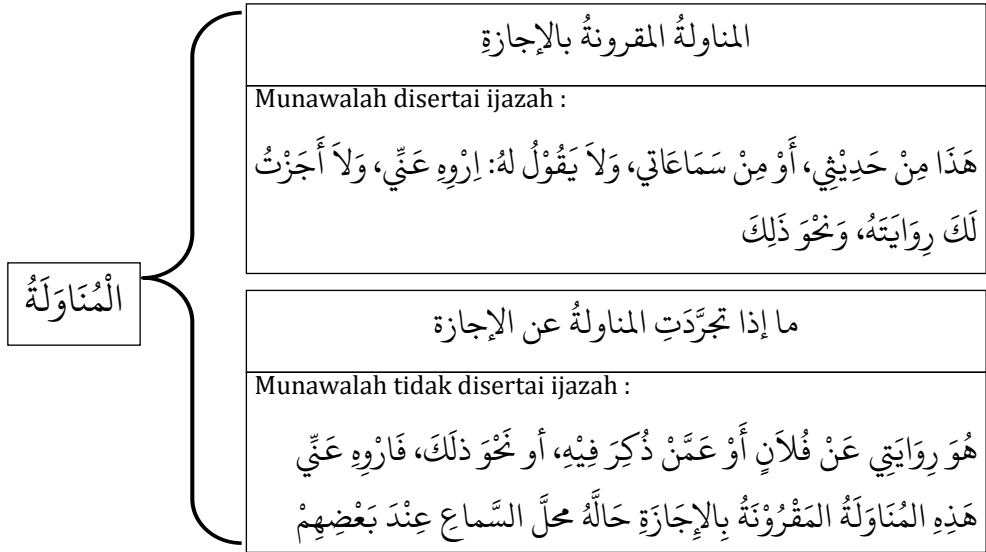 الْمُنَاوَلَةُ
المناولةُ المقرونةُ بالإجازةِ
Munawalah disertai ijazah :
هَذَا مِنْ حَدِيْثِي، أَوْ مِنْ سَمَاعَاتي، وَلاَ يَقُوْلُ لهُ: اِرْوِهِ عَنِّي، وَلاَ أَجَزْتُ
لَكَ رِوَايَتَهُ، وَنحْوَ ذَلِكَ
ما إذا تجرَّدَتِ المناولةُ عن الإجازة
Munawalah tidak disertai ijazah :
هُوَ رِوَايَتِي عَنْ فُلاَنٍ أَوْ عَمَّنْ ذُكِرَ فِيْهِ، أو نَحْوَ ذلَكَ، فَارْوِهِ عَنِّي
هَذِهِ المُنَاوَلَةُ المَقْرُوْنَةُ بِالإِجَازَةِ حَالَّهُ محلَّ السَّماعِ عِنْدَ بَعْضِهِمْ